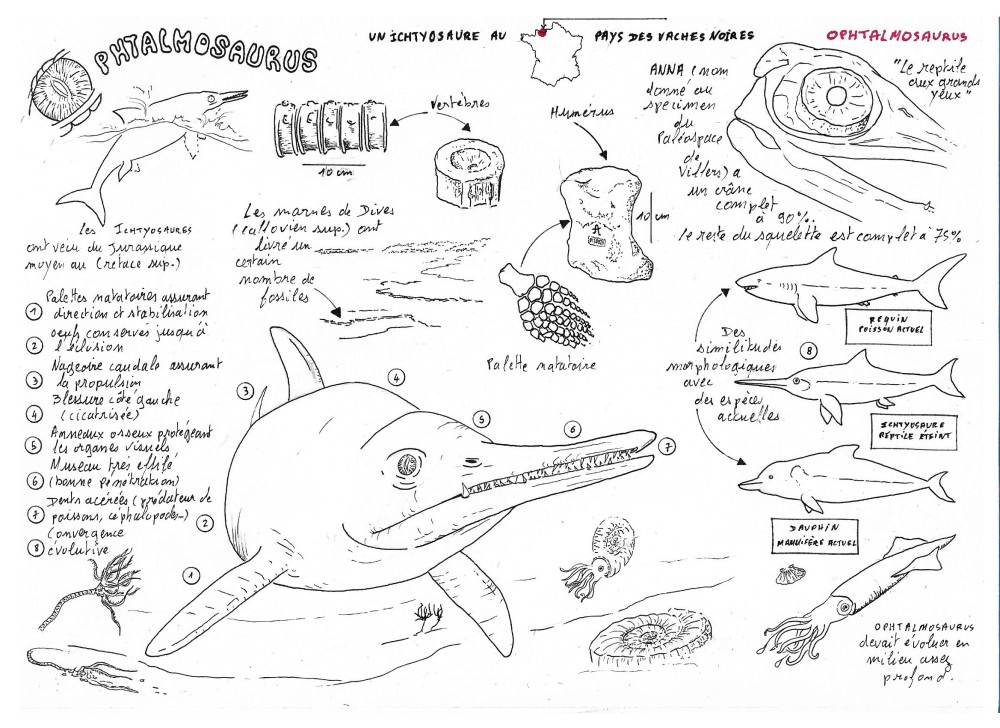 OPHTALMOSAURUS
UN ICHTYOSAURE AU PAYS DES VACHES NOIRES
OPHTALMOSAURUS
"Le reptile
aux grands
yeux"
Vertèbres
10 cm
Humérus
10 cm
ANNA (nom
donné au
specimen
du
Paléospace
de
Villers) a
un crâne
complet
à 90%.
le reste du squelette est complet à 75%
Les ICHTYOSAURES
ont vécu du Jurassique
moyen au Crétacé sup.)
Les marnes de Dives
(callovien sup.) ont
livré un
certain
nombre de
fossiles
Palette natatoire
1 Palettes natatoires assurant
direction et stabilisation
2 oeufs conservés jusqu'à
l'éclosion
3 Nageoire caudale assurant
la propulsion
4 Blessure côté gauche
(cicatrisée)
5 Anneaux osseux protégeant
les organes visuels
6 Museau très effilé
(bonne pénétration)
7 Dents acérées (prédateur de
poissons, céphalopodes..)
8 Convergence
évolutive
Des
similitudes
morphologiques
avec
des espèces
actuelles
8
REQUIN
POISSON ACTUEL
ICHTYOSAURE
REPTILE ETEINT
DAUPHIN
MAMMIFÈRE ACTUEL
3
4
5
6
7
2
1
OPHTALMOSAURUS
devait évoluer en
milieu assez
profond.